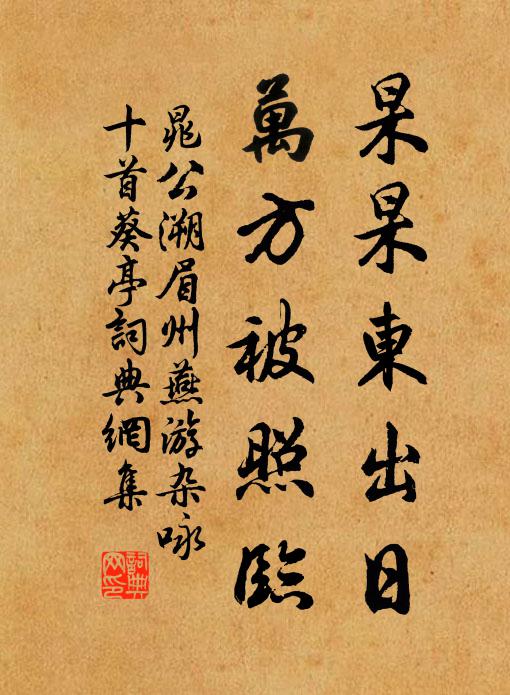 杲杲東出日
萬方被照臨
晁公溯眉州燕游杂咏
十首葵亭詞典網集
詞典网印